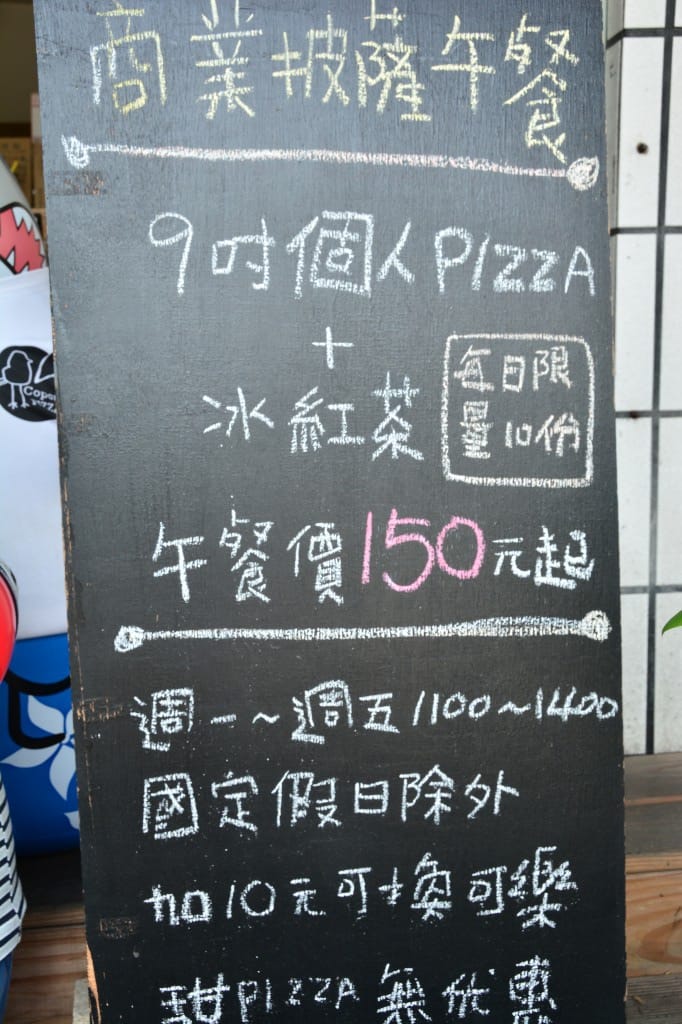 商業披薩午餐
9吋個人PIZZA
+
冰紅茶
每日限
量10份
午餐價150元起
週一~週五1100~1400
國定假日除外
加10元可換可樂
甜PIZZA無優惠